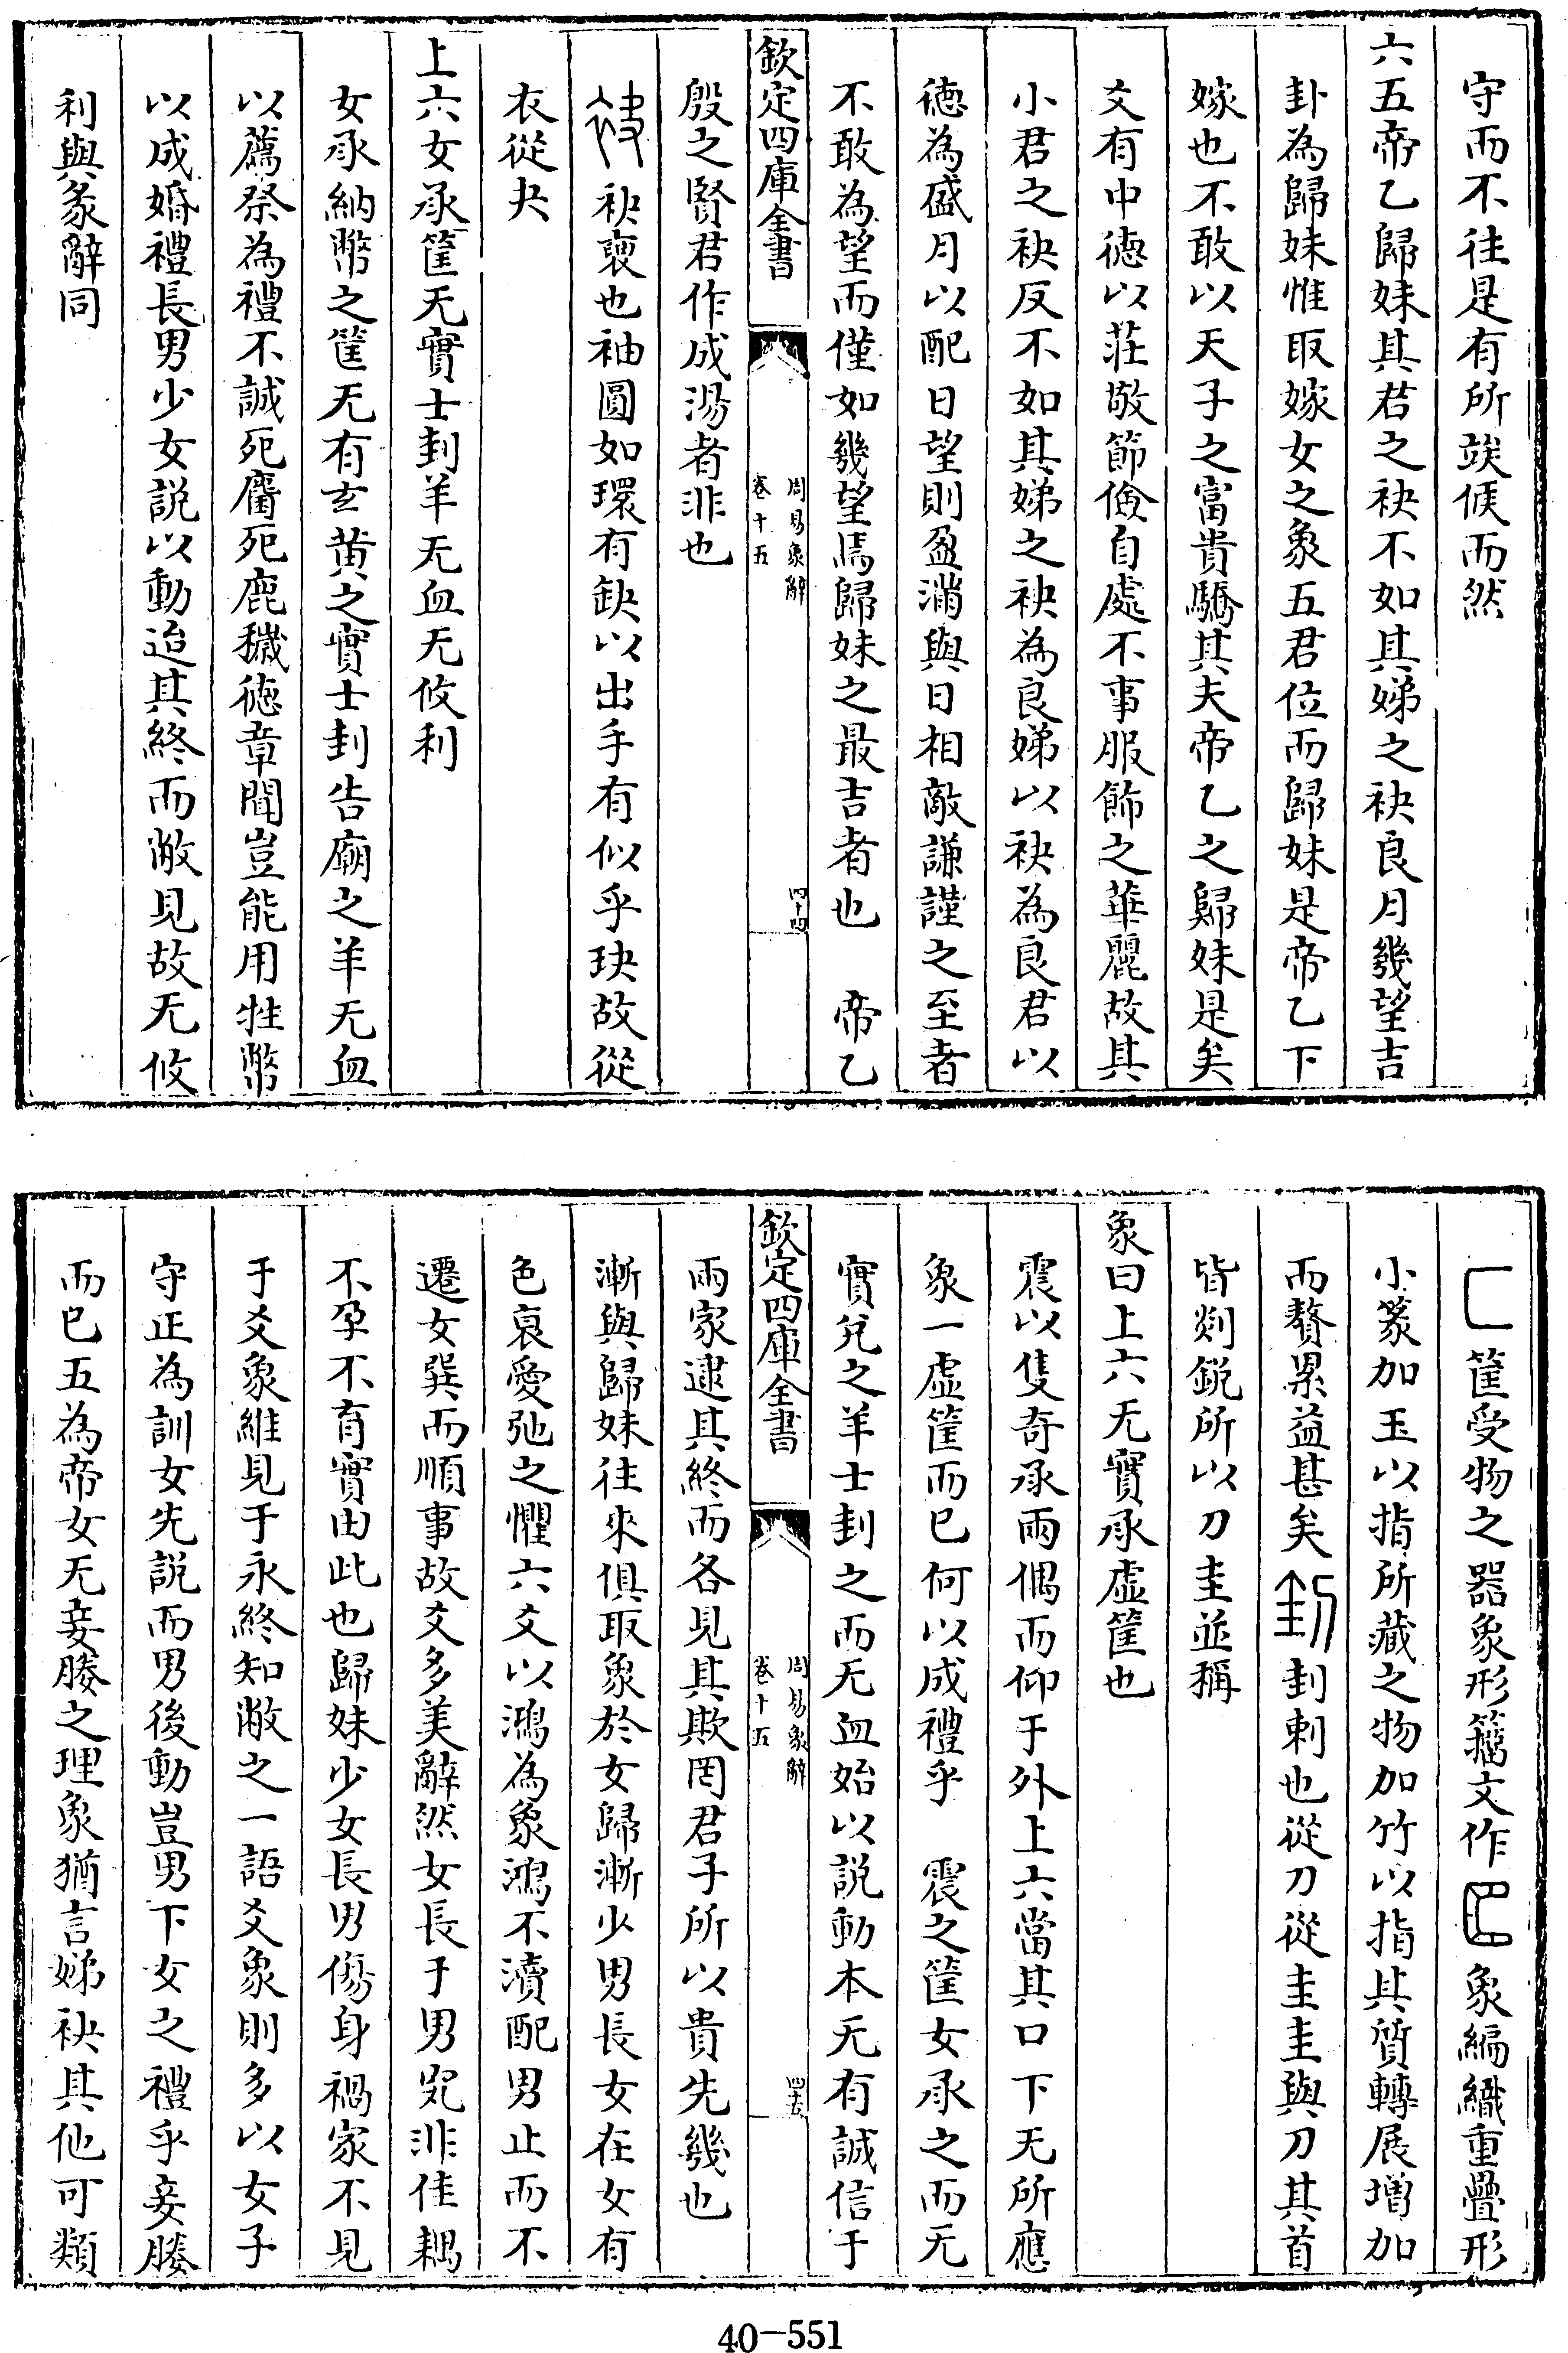 守而不往是有所竢候而然
六五帝乙歸妹其君之袂不如其娣之袂良月幾望吉
卦為歸妹惟取嫁女之象五君位而歸妹是帝乙下
嫁也不敢以天子之富貴驕其夫帝乙之歸妹是矣
爻有中徳以莊敬節儉自處不事服飾之華麗故其
小君之袂反不如其娣之袂為良娣以袂為良君以
徳為盛月以配日望則盈滿與日相敵謙謹之至者
不敢為望而僅如幾望焉歸妹之最吉者也　帝乙
欽定四庫全書
周易象辭
卷十五
四十四
殷之賢君作成湯者非也
袂褏也袖圓如環有缺以出手有似乎玦故從
衣從夬
上六女承筐无實士刲羊无血无攸利
女承納幣之筐无有玄黄之實士刲告廟之羊无血
以薦祭為禮不誠死麕死鹿穢徳章聞豈能用牲幣
以成婚禮長男少女説以動迨其終而敝見故无攸
利與彖辭同
匚筐受物之器象形籀文作𠥓象編織重疊形
小篆加玉以指所藏之物加竹以指其質轉展増加
而贅累益甚矣刲刲刺也從刀從圭圭與刀其首
皆剡鋭所以刀圭並稱
象曰上六无實承虛筐也
震以隻奇承兩偶而仰于外上六當其口下无所應
象一虛筐而已何以成禮乎　震之筐女承之而无
實兌之羊士刲之而无血始以説動本无有誠信于
欽定四庫全書
周易象辭
卷十五
四十五
兩家逮其終而各見其欺罔君子所以貴先幾也
漸與歸妹往來俱取象於女歸漸少男長女在女有
色衰愛弛之懼六爻以鴻為象鴻不瀆配男止而不
遷女巽而順事故爻多美辭然女長于男究非佳耦
不孕不育實由此也歸妹少女長男傷身禍家不見
于爻象維見于永終知敝之一語爻象則多以女子
守正為訓女先説而男後動豈男下女之禮乎妾媵
而已五為帝女无妾媵之理象猶言娣袂其他可類
40-551